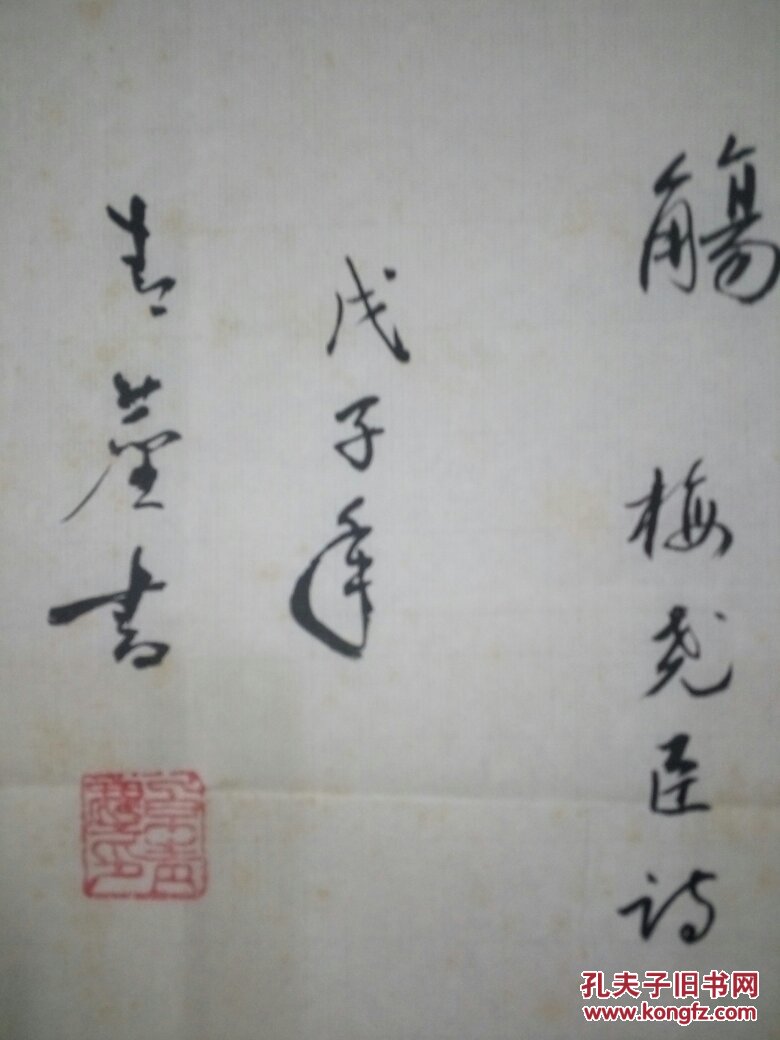 觴 梅尧臣诗
戊子年
青
书
孔夫子旧书网
www.kongfz.com